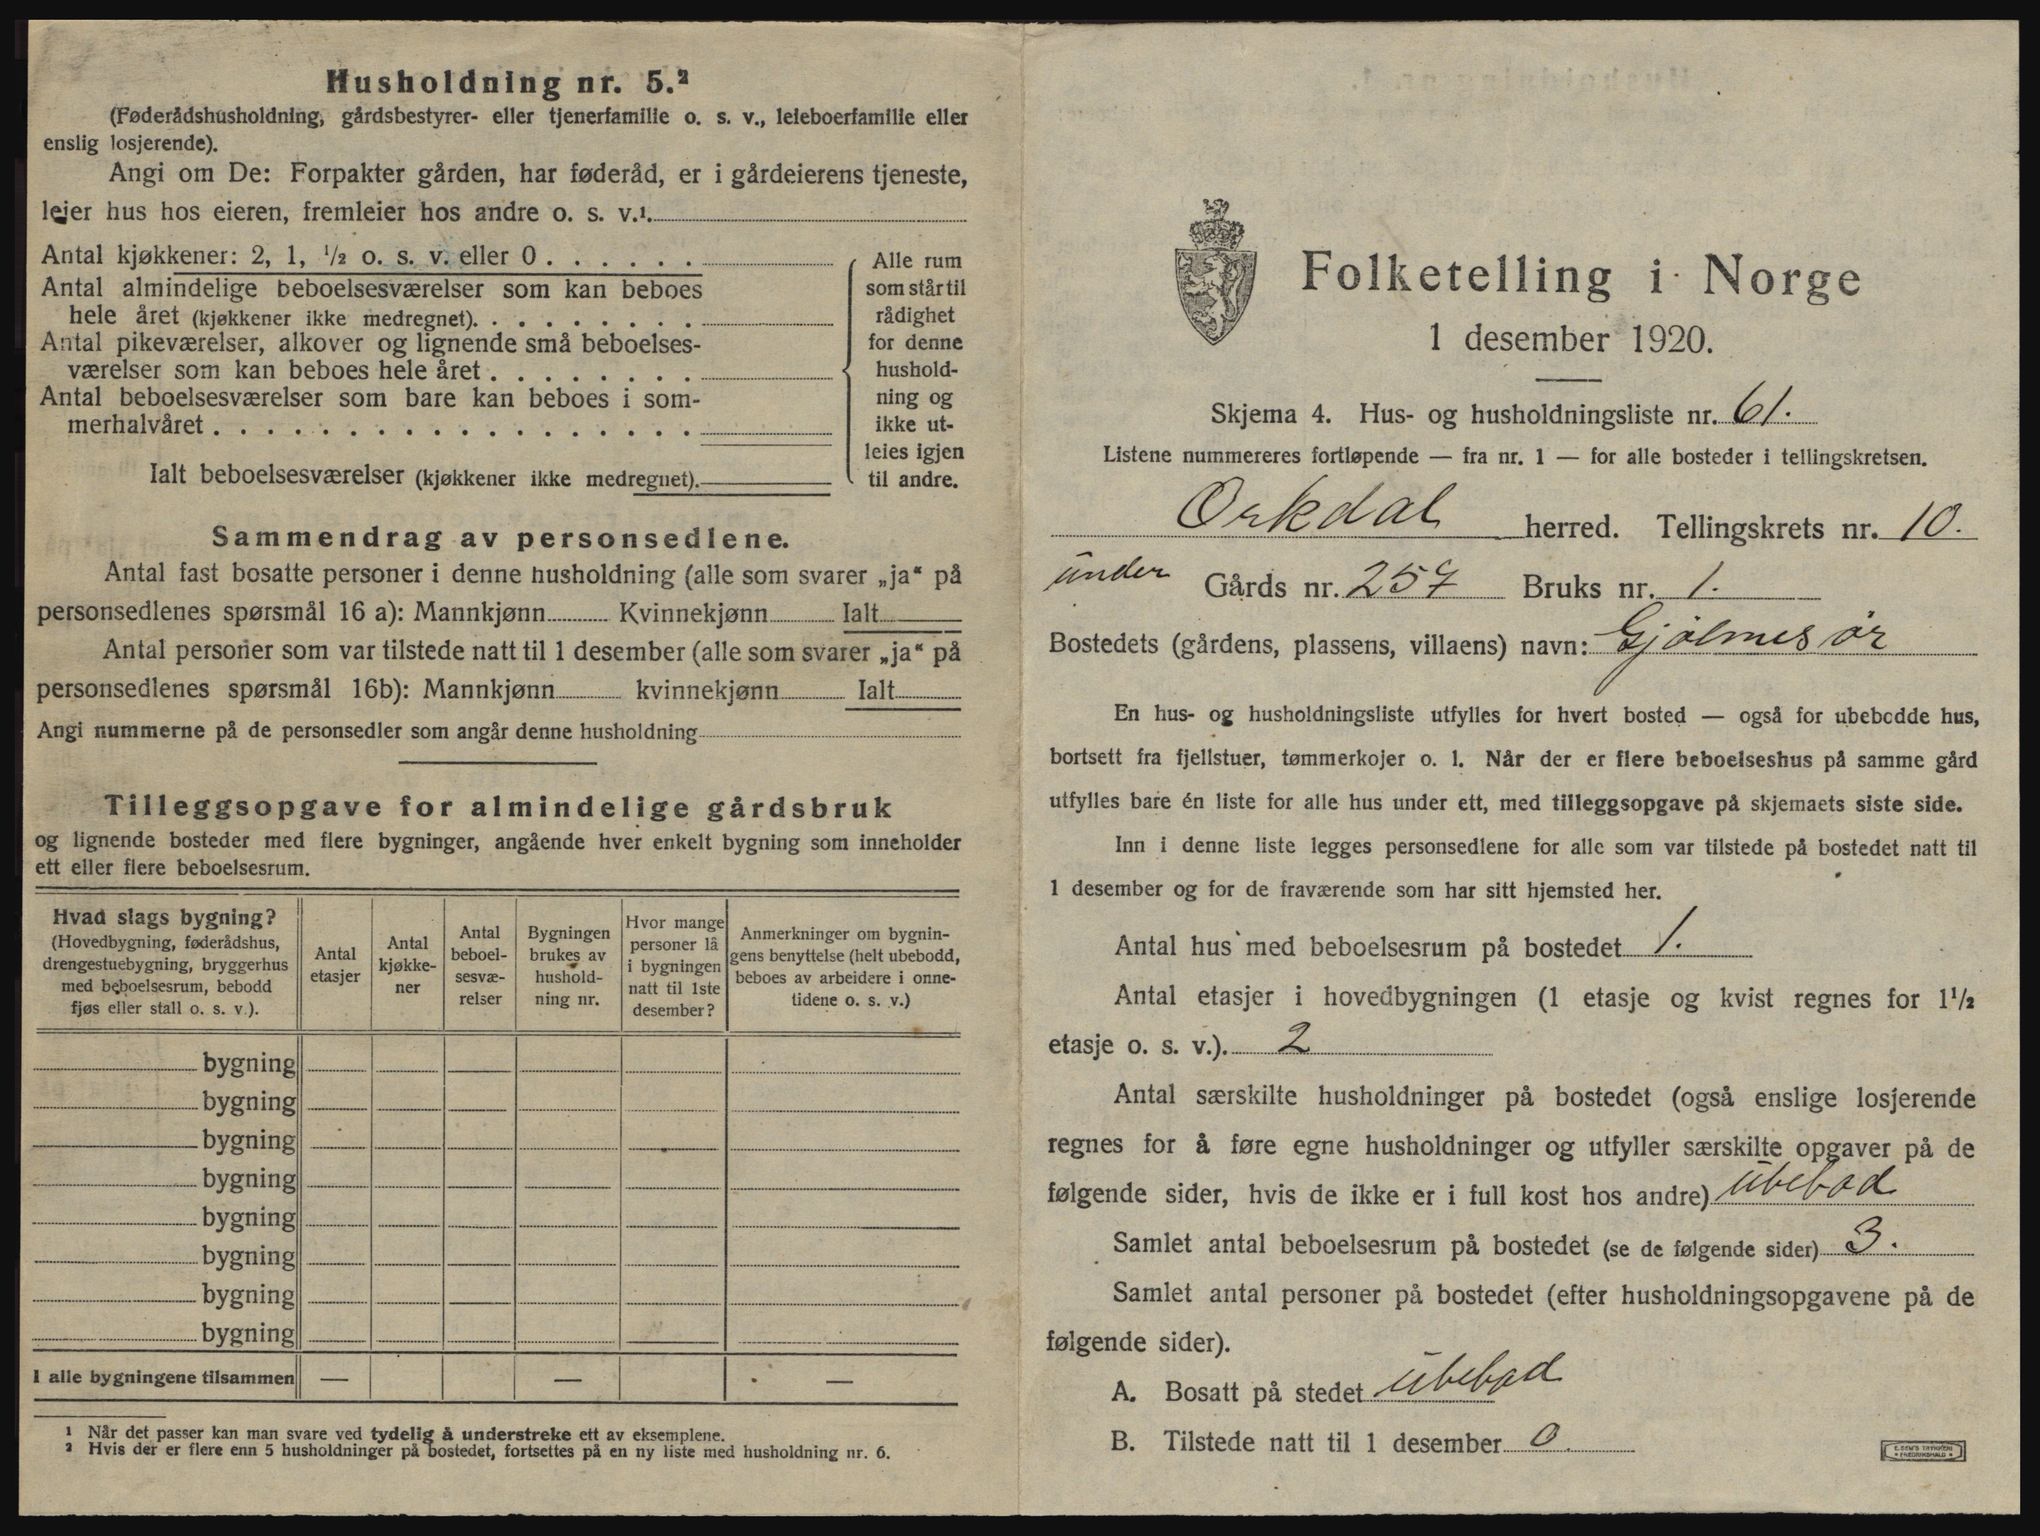 Husholdning nr. 5.²
(Føderådshusholdning, gårdsbestyrer- eller tjenerfamilie o. s. v., leieboerfamilie eller
enslig losjerende).
Angi om De: Forpakter gården, har føderåd, er i gårdeierens tjeneste,
leier hus hos eieren, fremleier hos andre o. s. v.¹.
Antal kjøkkener: 2, 1, ½ o. s. v. eller 0 . . . . . .
Antal almindelige beboelsesværelser som kan beboes
hele året (kjøkkener ikke medregnet). . . . . . . . .
Antal pikeværelser, alkover og lignende små beboelses-
værelser som kan beboes hele året . . . . . . . .
Antal beboelsesværelser som bare kan beboes i som-
merhalvåret . . . . . . . . . . . . . . . . . .
Ialt beboelsesværelser (kjøkkener ikke medregnet).
Alle rum
som står til
rådighet
for denne
hushold-
ning og
ikke ut-
leies igjen
til andre.
Sammendrag av personsedlene.
Antal fast bosatte personer i denne husholdning (alle som svarer „ja“ på
personsedlenes spørsmål 16 a): Mannkjønn Kvinnekjønn Ialt
Antal personer som var tilstede natt til 1 desember (alle som svarer „ja“ på
personsedlenes spørsmål 16b): Mannkjønn kvinnekjønn Ialt
Angi nummerne på de personsedler som angår denne husholdning
Tilleggsopgave for almindelige gårdsbruk
og lignende bosteder med flere bygninger, angående hver enkelt bygning som inneholder
ett eller flere beboelsesrum.
Hvad slags bygning?
(Hovedbygning, føderådshus,
drengestuebygning, bryggerhus
med beboelsesrum, bebodd
fjøs eller stall o. s. v.).
Antal
etasjer
Antal
kjøkke-
ner
Antal
beboel-
sesvæ-
relser
Bygningen
brukes av
hushold-
ning nr.
Hvor mange
personer lå
i bygningen
natt til 1ste
desember?
Anmerkninger om bygnin-
gens benyttelse (helt ubebodd,
beboes av arbeidere i onne-
tidene o. s. v.)
bygning
bygning
bygning
bygning
bygning
bygning
bygning
bygning
I alle bygningene tilsammen — — —
¹ Når det passer kan man svare ved tydelig å understreke ett av eksemplene.
² Hvis der er flere enn 5 husholdninger på bostedet, fortsettes på en ny liste med husholdning nr. 6.
Folketelling i Norge
1 desember 1920.
Skjema 4. Hus- og husholdningsliste nr. 61.
Listene nummereres fortløpende — fra nr. 1 — for alle bosteder i tellingskretsen.
Orkdal herred. Tellingskrets nr. 10.
under Gårds nr. 257 Bruks nr. 1.
Bostedets (gårdens, plassens, villaens) navn: Gjølmesør
En hus- og husholdningsliste utfylles for hvert bosted — også for ubebodde hus,
bortsett fra fjellstuer, tømmerkojer o. l. Når der er flere beboelseshus på samme gård
utfylles bare én liste for alle hus under ett, med tilleggsopgave på skjemaets siste side.
Inn i denne liste legges personsedlene for alle som var tilstede på bostedet natt til
1 desember og for de fraværende som har sitt hjemsted her.
Antal hus med beboelsesrum på bostedet 1.
Antal etasjer i hovedbygningen (1 etasje og kvist regnes for 1½
etasje o. s. v.). 2
Antal særskilte husholdninger på bostedet (også enslige losjerende
regnes for å føre egne husholdninger og utfyller særskilte opgaver på de
følgende sider, hvis de ikke er i full kost hos andre) ubebod
Samlet antal beboelsesrum på bostedet (se de følgende sider) 3.
Samlet antal personer på bostedet (efter husholdningsopgavene på de
følgende sider).
A. Bosatt på stedet ubebod
B. Tilstede natt til 1 desember 0.
E. SEM'S TRYKKERI
FREDRIKSHALD